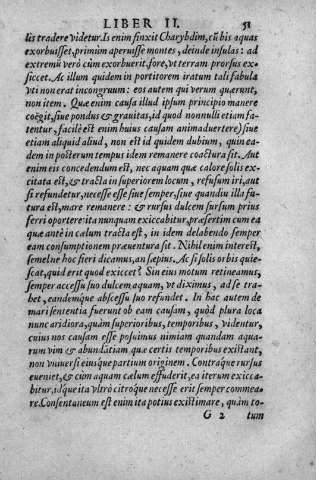 LIBER II. 51
lis tradere videtur. Is enim finxit Charybdim, cũ bis aquas
exorbuisset, primùm aperuisse montes, deinde insulas: ad
extremũ verò cùm exorbuerit, fore, vt terram prorsus ex-
siccet. Ac illum quidem in portitorem iratum tali fabula
vti non erat incongruum: eos autem qui verum quærunt,
non item. Quæ enim causa illud ipsum principio manere
coëgit, siue pondus & grauitas, id quod nonnulli etiam fa-
tentur, facilè est enim huius causam animaduertere) siue
etiam aliquid aliud, non est id quidem dubium, quin ea-
dem in posterum tempus idem remanere coactura sit. Aut
enim eis concedendum est, nec aquam quæ calore solis ex-
citata est, & tracta in superiorem locum, refusum iri, aut
si refundetur, necesse esse siue semper, siue quandiu illa fu-
tura est, mare remanere: & rursus dulcem sursum prius
ferri oportere: ita nunquam exiccabitur, præsertim cum ea
quæ antè in calum tracta est, in idem delabendo semper
eam consumptionem præuentura sit. Nihil enim interest,
semelne hoc fieri dicamus, an sæpius. Ac si solis orbis quie-
scat, quid erit quod exiccet? Sin eius motum retineamus,
semper accessu suo dulcem aquam, vt diximus, ad se tra-
het, eandemque abscessu suo refundet. In hac autem de
mari sententia fuerunt ob eam causam, quòd plura loca
nunc aridiora, quàm superioribus, temporibus, videntur,
cuius nos causam esse posuimus nimiam quandam aqua-
rum vim & abundãtiam quæ certis temporibus existant,
non vniuersi eiusque partium originem. Contraque rursus
eueniet, & cùm aquam cælum effuderit, ea iterum exicca-
bitur, idque ita vltrò citroque necesse erit semper commea-
re. Consentaneum est enim ita potius existimare, quàm to-
G 2 tum